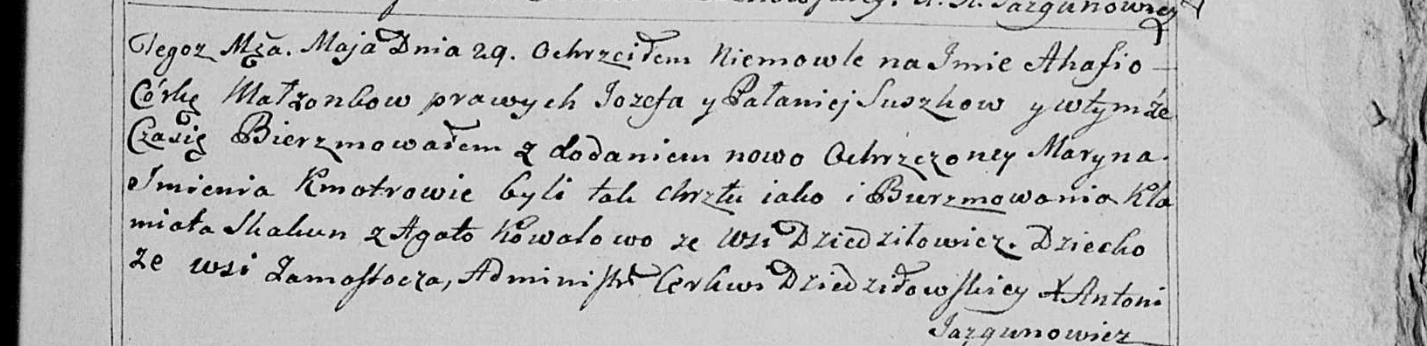 X. A. Jazgunowicz
Tegoz Mca. Maja Dnia 29. Ochrzciłem Niemowle na Imie Ahafio
Córkę Małzonkow prawych Jozefa y Pałaniej Suszkow y wtymże
Czasię Bierzmowałem z dodaniem nowo Ochrzczoney Maryna.
Imienia Kmotrowie byli tak chrztu iako i Bierzmowania Kla
miata Skakun z Agato Kowalowo ze Wsi Dziedziłowicz. Dziecko
ze wsi Zamostocza, Administr Cerkwi Dziedziłowskiey X Antoni
Jazgunowicz